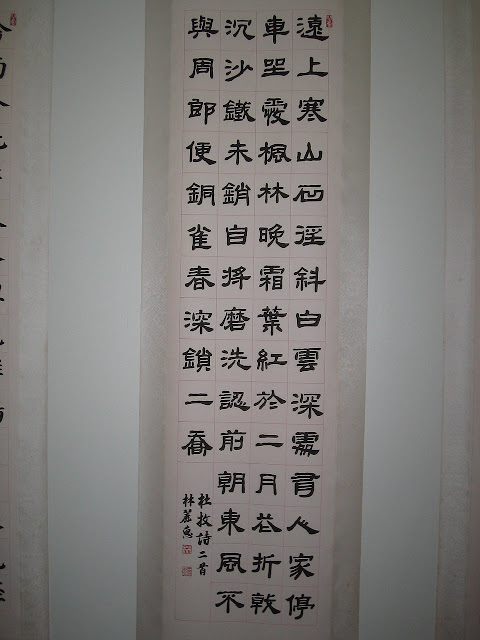 遠上寒山石徑斜白雲深處有人家停
車坐愛楓林晚霜葉紅於二月花折戟
沉沙鐵未銷自將磨洗認前朝東風不
與周郎便銅雀春深鎖二喬
杜牧詩二首
林